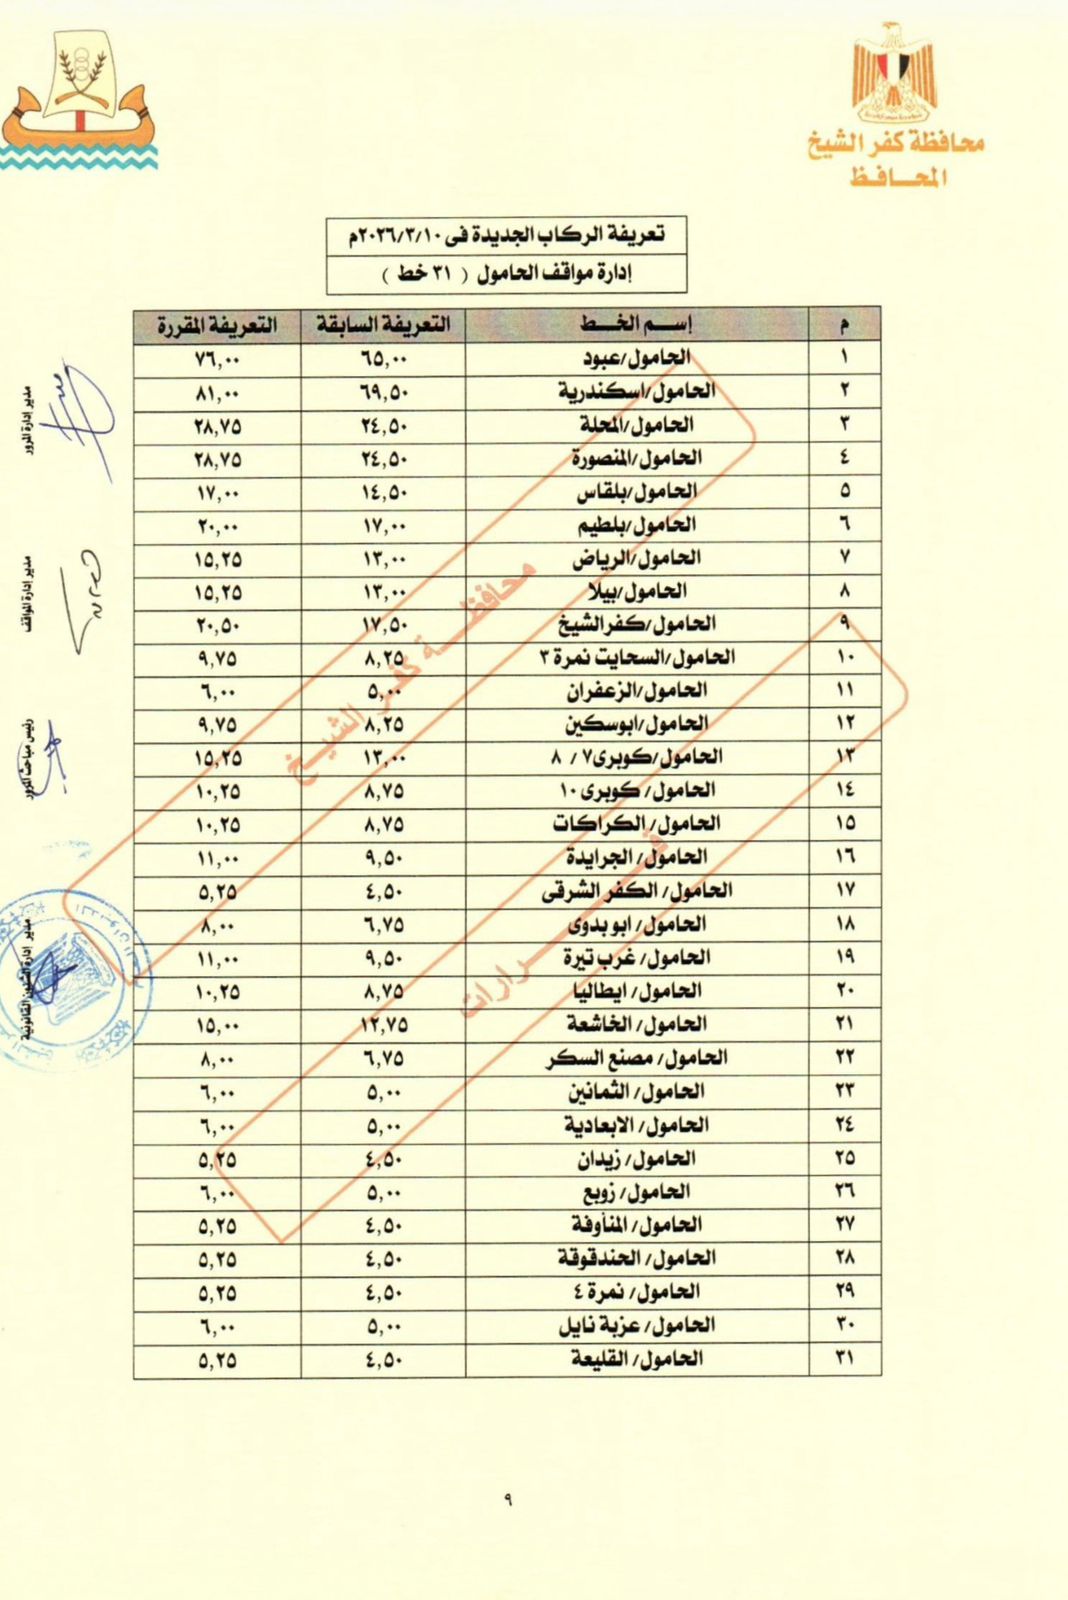 محافظة كفر الشيخ
المحافظ
تعريفة الركاب الجديدة فى ٢٠٢٦/٣/١٠م
إدارة مواقف الحامول ( ٣١ خط )
م إسم الخط التعريفة السابقة التعريفة المقررة
١ الحامول/عبود ٦٥,٠٠ ٧٦,٠٠
٢ الحامول/اسكندرية ٦٩,٥٠ ٨١,٠٠
٣ الحامول/المحلة ٢٤,٥٠ ٢٨,٧٥
٤ الحامول/المنصورة ٢٤,٥٠ ٢٨,٧٥
٥ الحامول/بلقاس ١٤,٥٠ ١٧,٠٠
٦ الحامول/بلطيم ١٧,٠٠ ٢٠,٠٠
٧ الحامول/الرياض ١٣,٠٠ ١٥,٢٥
٨ الحامول/بيلا ١٣,٠٠ ١٥,٢٥
٩ الحامول/كفرالشيخ ١٧,٥٠ ٢٠,٥٠
١٠ الحامول/السحايت نمرة ٣ ٨,٢٥ ٩,٧٥
١١ الحامول/الزعفران ٥,٠٠ ٦,٠٠
١٢ الحامول/ابوسكين ٨,٢٥ ٩,٧٥
١٣ الحامول/كوبرى٧ / ٨ ١٣,٠٠ ١٥,٢٥
١٤ الحامول/ كوبرى ١٠ ٨,٧٥ ١٠,٢٥
١٥ الحامول/ الكراكات ٨,٧٥ ١٠,٢٥
١٦ الحامول/ الجرايدة ٩,٥٠ ١١,٠٠
١٧ الحامول/ الكفر الشرقى ٤,٥٠ ٥,٢٥
١٨ الحامول/ ابو بدوى ٦,٧٥ ٨,٠٠
١٩ الحامول/ غرب تيرة ٩,٥٠ ١١,٠٠
٢٠ الحامول/ ايطاليا ٨,٧٥ ١٠,٢٥
٢١ الحامول/ الخاشعة ١٢,٧٥ ١٥,٠٠
٢٢ الحامول/ مصنع السكر ٦,٧٥ ٨,٠٠
٢٣ الحامول/ الثمانين ٥,٠٠ ٦,٠٠
٢٤ الحامول/ الابعادية ٥,٠٠ ٦,٠٠
٢٥ الحامول/ زيدان ٤,٥٠ ٥,٢٥
٢٦ الحامول/ زوبع ٥,٠٠ ٦,٠٠
٢٧ الحامول/ المنأوفة ٤,٥٠ ٥,٢٥
٢٨ الحامول/ الحندقوقة ٤,٥٠ ٥,٢٥
٢٩ الحامول/ نمرة ٤ ٤,٥٠ ٥,٢٥
٣٠ الحامول/ عزبة نايل ٥,٠٠ ٦,٠٠
٣١ الحامول/ القليعة ٤,٥٠ ٥,٢٥
محافظة كفر الشيخ
قرارات
مدير إدارة المرور
مدير إدارة المواقف
رئيس مباحث المرور
مدير إدارة الشئون القانونية
٩